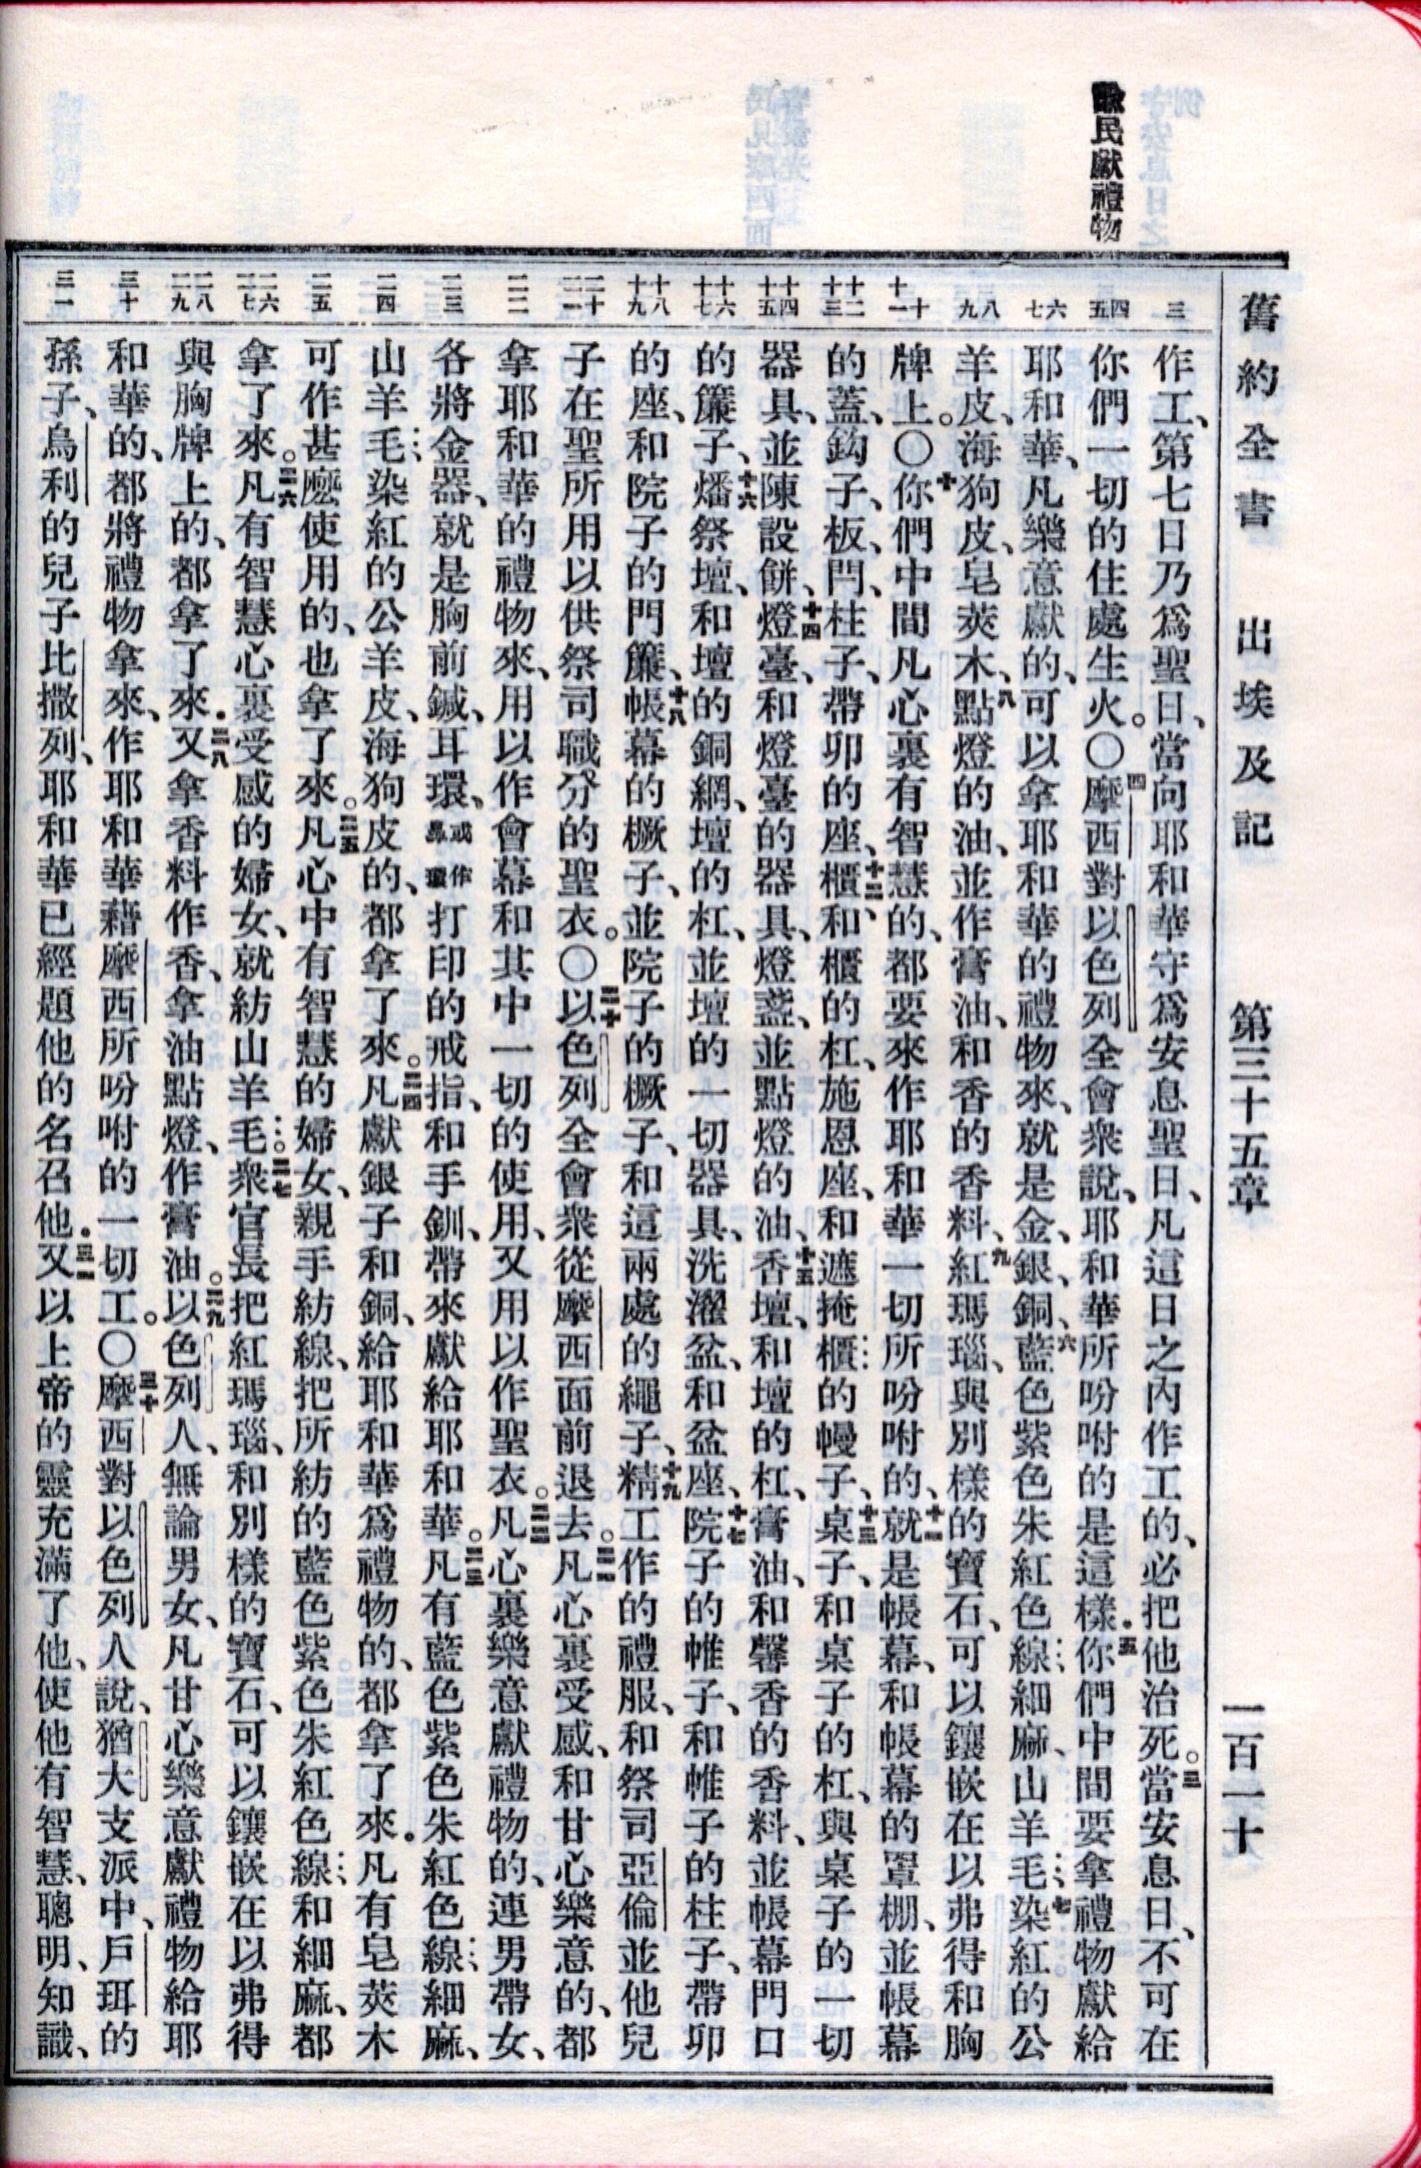 諭民獻禮物
舊約全書 出埃及記 第三十五章 一百一十
三
作工、第七日乃爲聖日、當向耶和華守爲安息聖日、凡這日之內作工的、必把他治死。三當安息日、不可在
四五
你們一切的住處生火。〇四摩西對以色列全會衆說、耶和華所吩咐的是這樣．五你們中間要拿禮物獻給
六七
耶和華、凡樂意獻的、可以拿耶和華的禮物來、就是金、銀、銅、六藍色紫色朱紅色線、細麻、山羊毛、七染紅的公
八九
羊皮、海狗皮、皂莢木、八點燈的油、並作膏油、和香的香料、九紅瑪瑙、與別樣的寶石、可以鑲嵌在以弗得和胸
十十一
牌上。〇十你們中間凡心裏有智慧的、都要來作耶和華一切所吩咐的、十一就是帳幕、和帳幕的罩棚、並帳幕
十二十三
的蓋、鈎子、板、閂、柱子、帶卯的座、十二櫃、和櫃的杠、施恩座、和遮掩櫃的幔子、十三桌子、和桌子的杠、與桌子的一切
十四十五
器具、並陳設餅、十四燈臺、和燈臺的器具、燈盞、並點燈的油、十五香壇、和壇的杠、膏油、和馨香的香料、並帳幕門口
十六十七
的簾子、十六燔祭壇、和壇的銅網、壇的杠、並壇的一切器具、洗濯盆、和盆座、十七院子的帷子、和帷子的柱子、帶卯
十八十九
的座、和院子的門簾、十八帳幕的橛子、並院子的橛子、和這兩處的繩子、十九精工作的禮服、和祭司亞倫並他兒
二十二一
子在聖所用以供祭司職分的聖衣。〇二十以色列全會衆從摩西面前退去。二一凡心裏受感、和甘心樂意的、都
二二
拿耶和華的禮物來、用以作會幕和其中一切的使用、又用以作聖衣。二二凡心裏樂意獻禮物的、連男帶女、
二三
各將金器、就是胸前鍼、耳環、或作鼻環打印的戒指、和手釧、帶來獻給耶和華。二三凡有藍色紫色朱紅色線、細麻、
二四
山羊毛、染紅的公羊皮、海狗皮的、都拿了來。二四凡獻銀子和銅、給耶和華爲禮物的、都拿了來．凡有皂莢木
二五
可作甚麼使用的、也拿了來。二五凡心中有智慧的婦女、親手紡線、把所紡的藍色紫色朱紅色線、和細麻、都
二六二七
拿了來。二六凡有智慧心裏受感的婦女、就紡山羊毛。二七衆官長把紅瑪瑙、和別樣的寶石、可以鑲嵌在以弗得
二八二九
與胸牌上的、都拿了來．二八又拿香料作香、拿油點燈、作膏油。二九以色列人、無論男女、凡甘心樂意獻禮物給耶
三十
和華的、都將禮物拿來、作耶和華藉摩西所吩咐的一切工。〇三十摩西對以色列人說、猶大支派中、戶珥的
三一
孫子、烏利的兒子比撒列、耶和華已經題他的名召他．三一又以上帝的靈充滿了他、使他有智慧、聰明、知識、